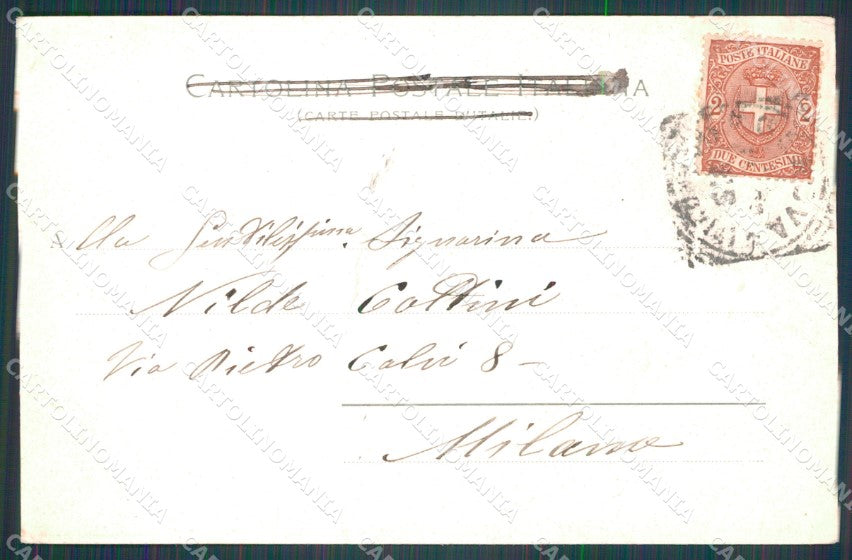 CARTOLINA POSTALE ITALIANA
(CARTE POSTALE D'ITALIE.)
POSTE ITALIANE
2 2
DUE CENTESIMI
Alla Gentilissima Signorina
Nilde Cottini
Via Pietro Calvi 8 -
Milano
CARTOLINOMANIA